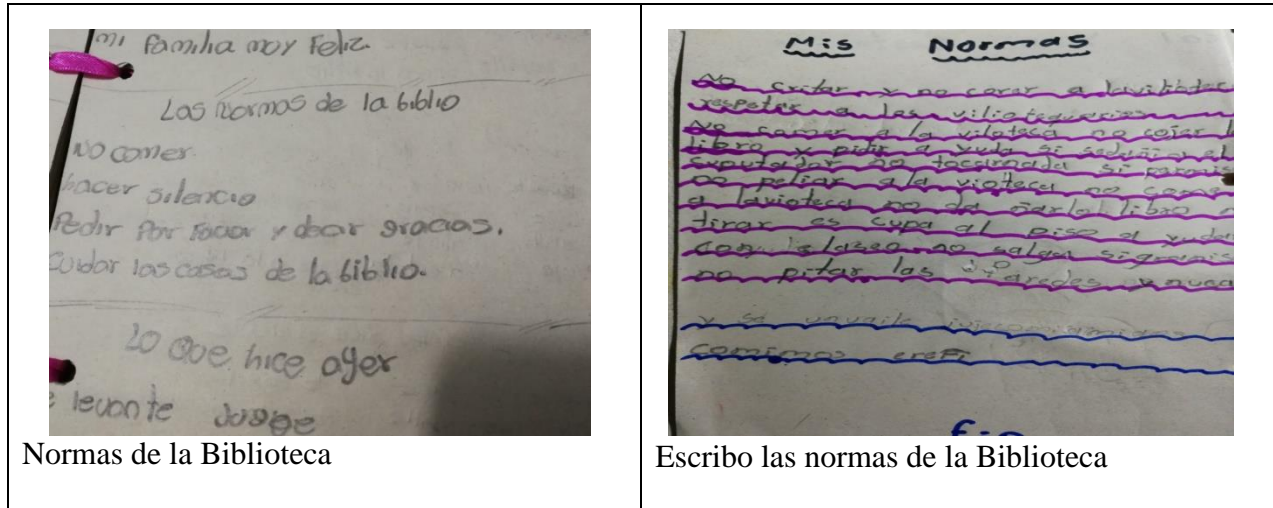 mi familia moy Feliz.
Las normas de la biblio
NO comer
hacer silencio
Pedir Por Favor y decir gracias.
cuidar las cosas de la biblio.
Lo que hice ayer
levante Jugge
Normas de la Biblioteca
Mis Normas
No gritar y no corer a
respetar a las viliotequarias
No comer a la viloteca no cojer
libro y pidir a yuda si
no tocarnada si
no peliar a la vioteca no come
a lavioteca no libro
tirar es cupa al piso a yudar
con elaseo no salga
no pitar las paredes y nuca
y se
comimos
fin
Escribo las normas de la Biblioteca